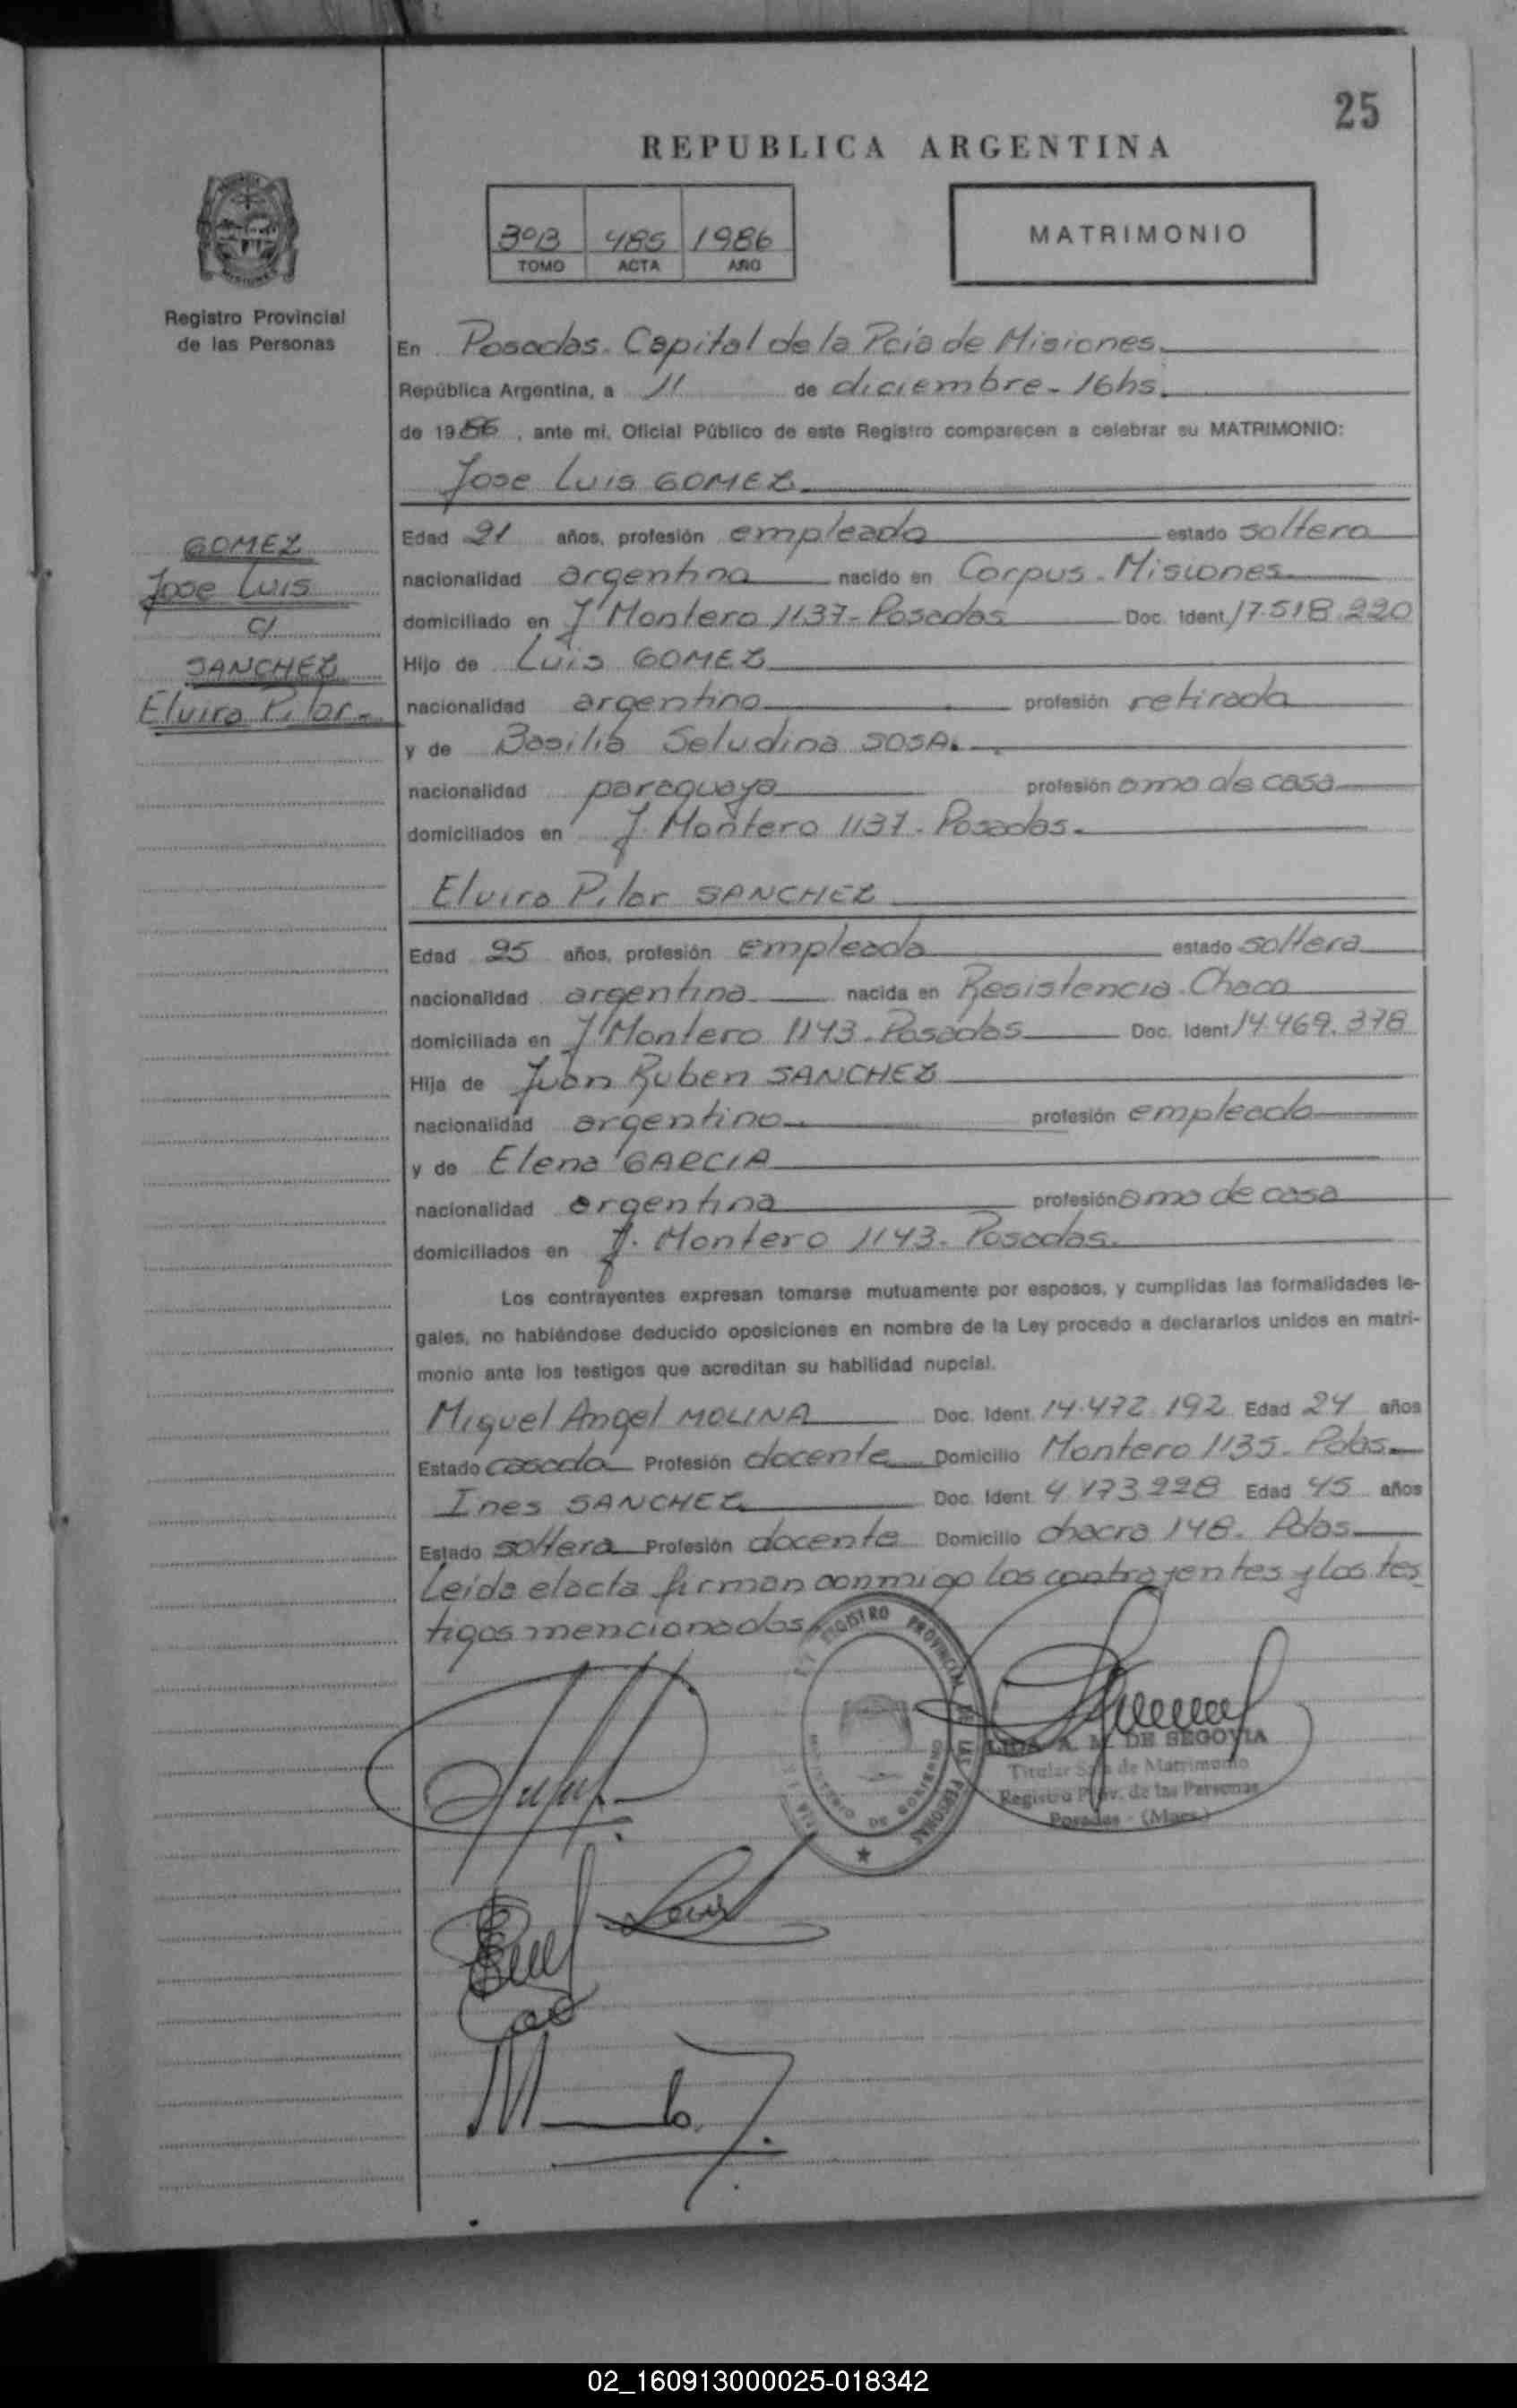 25
REPUBLICA ARGENTINA
3ºB 485 1986
TOMO ACTA AÑO
MATRIMONIO
Registro Provincial
de las Personas
En Posadas. Capital de la Pcia de Misiones.
República Argentina, a 11 de diciembre - 16hs.
de 1986, ante mi, Oficial Público de este Registro comparecen a celebrar su MATRIMONIO:
Jose Luis GOMEZ
GOMEZ
Jose Luis
c/
SANCHEZ
Elvira Pilar.-
Edad 21 años, profesión empleado estado soltero
nacionalidad argentino nacido en Corpus. Misiones.
domiciliado en J Montero 1137- Posadas Doc. Ident. 17.518.220
Hijo de Luis GOMEZ
nacionalidad argentino profesión retirado
y de Basilia Seludina SOSA.
nacionalidad paraguaya profesión ama de casa
domiciliados en J. Montero 1137. Posadas.
Elvira Pilar SANCHEZ
Edad 25 años, profesión empleada estado soltera
nacionalidad argentina nacida en Resistencia. Chaco
domiciliada en J Montero 1143. Posadas Doc. Ident. 14.469.378
Hija de Juan Ruben SANCHEZ
nacionalidad argentino profesión empleado
y de Elena GARCIA
nacionalidad argentina profesión ama de casa
domiciliados en J. Montero 1143. Posadas.
Los contrayentes expresan tomarse mutuamente por esposos, y cumplidas las formalidades le-
gales, no habiéndose deducido oposiciones en nombre de la Ley procedo a declararlos unidos en matri-
monio ante los testigos que acreditan su habilidad nupcial.
Miguel Angel MOLINA Doc. Ident. 14.472.192 Edad 24 años
Estado casado Profesión docente Domicilio Montero 1135. Pdas.
Ines SANCHEZ Doc. Ident. 4.173.228 Edad 45 años
Estado soltera Profesión docente Domicilio chacra 148. Pdas.
Leída el acta firman conmigo los contrayentes y los tes
tigos mencionados
REGISTRO PROVINCIAL DE LAS PERSONAS
MINISTERIO DE GOBIERNO
A. M. DE SEGOVIA
Titular Sala de Matrimonio
Registro Prov. de las Personas
Posadas - (Mnes.)
02_160913000025-018342